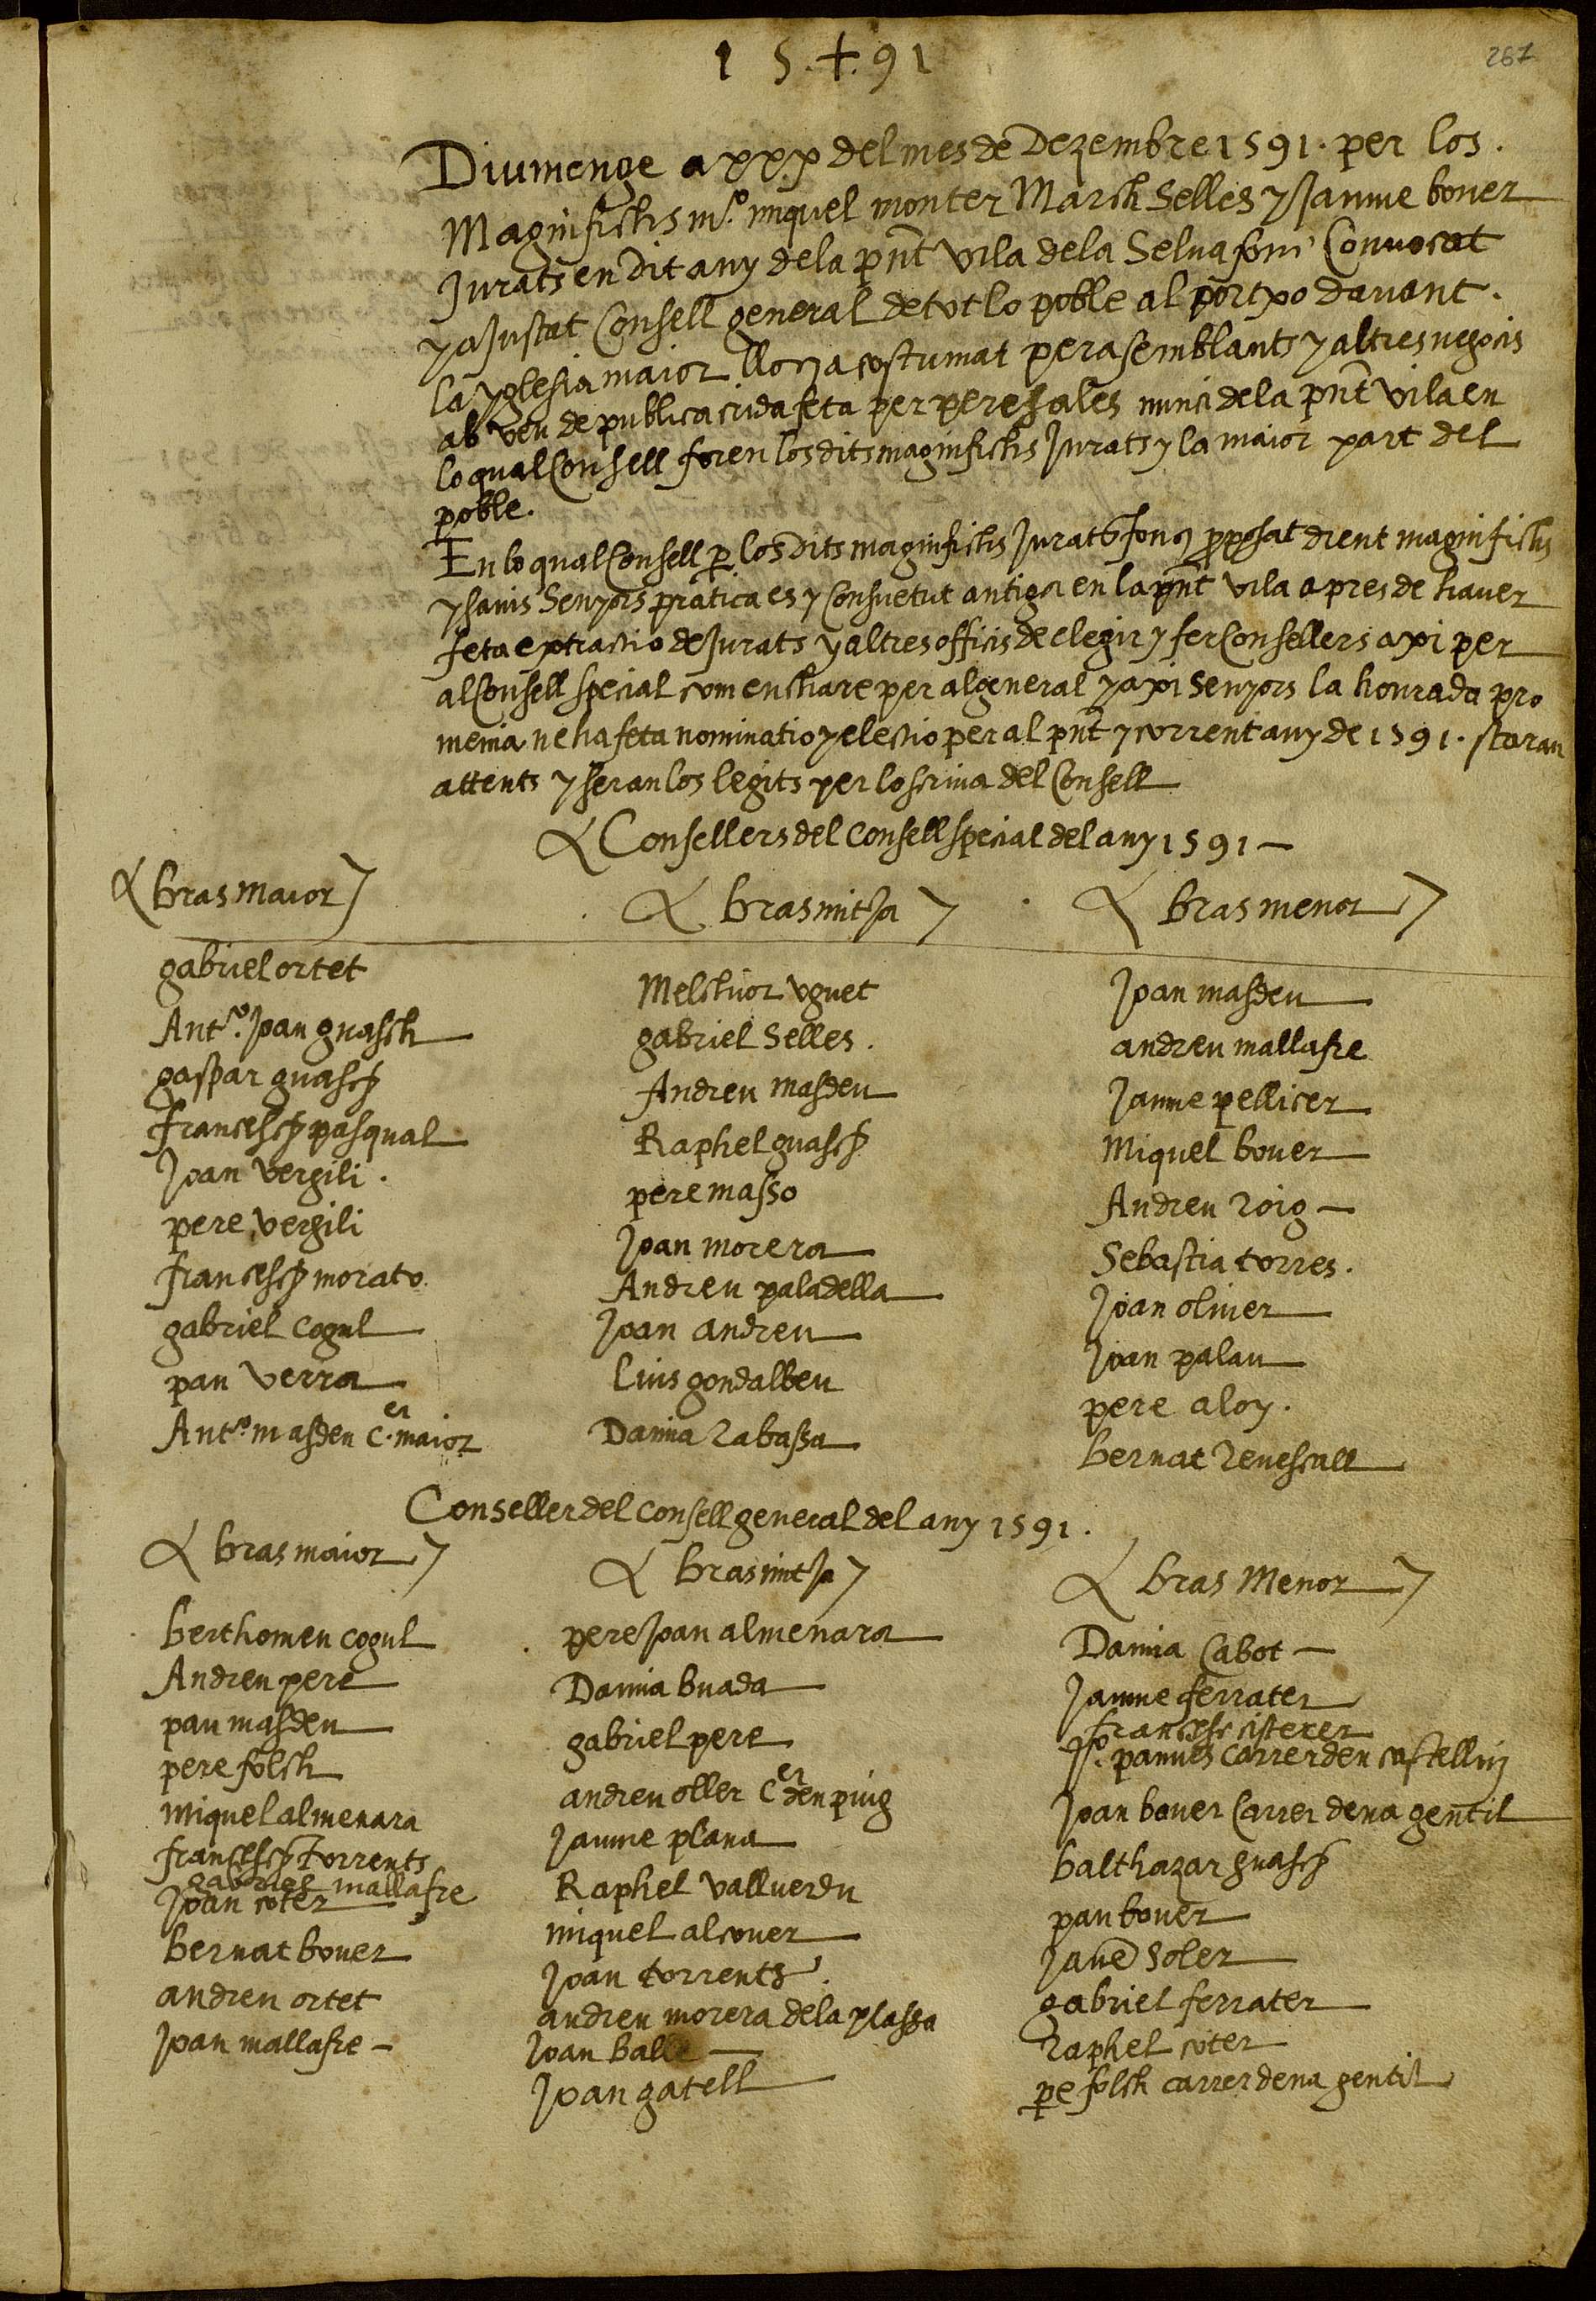 1 5 .+. 91
287
Diumenge a xxx del mes de Dezembre 1591. per los.
Maginfichs mº. miquel monter March Selles y Jaume bouer
Jurats en dit any de la pnt vila de la Selua fonc Conuocat
y aJustat Consell general de tot lo poble al portxo dauant.
la yglesia maior lloc acostumat per a semblants y altres negocis
ab veu de publica crida feta per pere sales nunci de la pnt vila en
lo qual Consell foren los dits maginfichs Jurats y la maior part del
poble.
En lo qual Consell p los dits maginfichs Jurats fonc pposat dient maginfichs
y sauis Senyors pratica es y Consuetut antiga en la pnt vila apres de hauer
feta extractio de Jurats y altres officis de elegir y fer Consellers axi per
al Consell special com enchare per al general y axi Senyors la honrada pro
menia ne ha feta nominatio y electio per al pnt y corrent any de 1591. staran
attents y seran los legits per lo scriua del Consell
Consellers del Consell special del any 1591 —
bras maior
gabriel ortet
Antº. Joan guasch
gaspar guasch
francesch pasqual
Joan vergili.
pere vergili
francesch morato
gabriel cogul
pau verra
Antº. masdeu c.er maior
bras mitJa
Melchior vguet
gabriel Selles.
Andreu masdeu
Raphel guasch
pere masso
Joan morera
Andreu paladella
Joan andreu
Luis gondalbeu
Damia Rabassa
bras menor
Joan masdeu
andreu mallafre
Jaume pellicer
Miquel bouer
Andreu Roig —
Sebastia torres.
Joan oliuer
Joan palau
pere aloy.
bernat Reuescall
Conseller del Consell general del any 1591.
bras maior
berthomeu cogul
Andreu pere
pau masdeu
pere folch
miquel almenara
francesch torrents
gabriel mallafre
Joan coter
bernat bouer
andreu ortet
Joan mallafre —
bras mitJa
pere Joan almenara
Damia buada
gabriel pere
andreu oller C.er den puig
Jaume plana
Raphel vallverdu
miquel alcouer
Joan torrents.
andreu morera de la plassa
Joan balle —
Joan gatell
bras Menor
Damia Cabot —
Jaume ferrater
francesc cisterer
pamies carrer den castelluy
Joan bouer Carrer de na gentil
balthazar guasch
pau bouer
Jaue Soler
gabriel ferrater
Raphel coter
pe folch carrer de na gentil